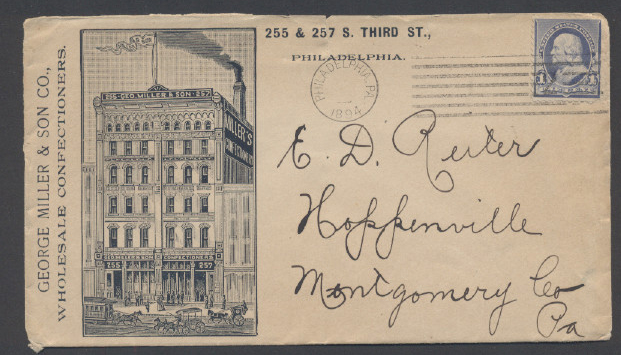 GEORGE MILLER & SON CO.,
WHOLESALE CONFECTIONERS.
255 & 257 S. THIRD ST.,
PHILADELPHIA.
255-GEO. MILLER & SON-257
MILLER'S
CONFECTIONS
GEO. MILLER & SON CONFECTIONERS
255
257
PHILADELPHIA, PA.
1894
1
1
E. D. Reiter
Hoppenville
Montgomery Co
Pa